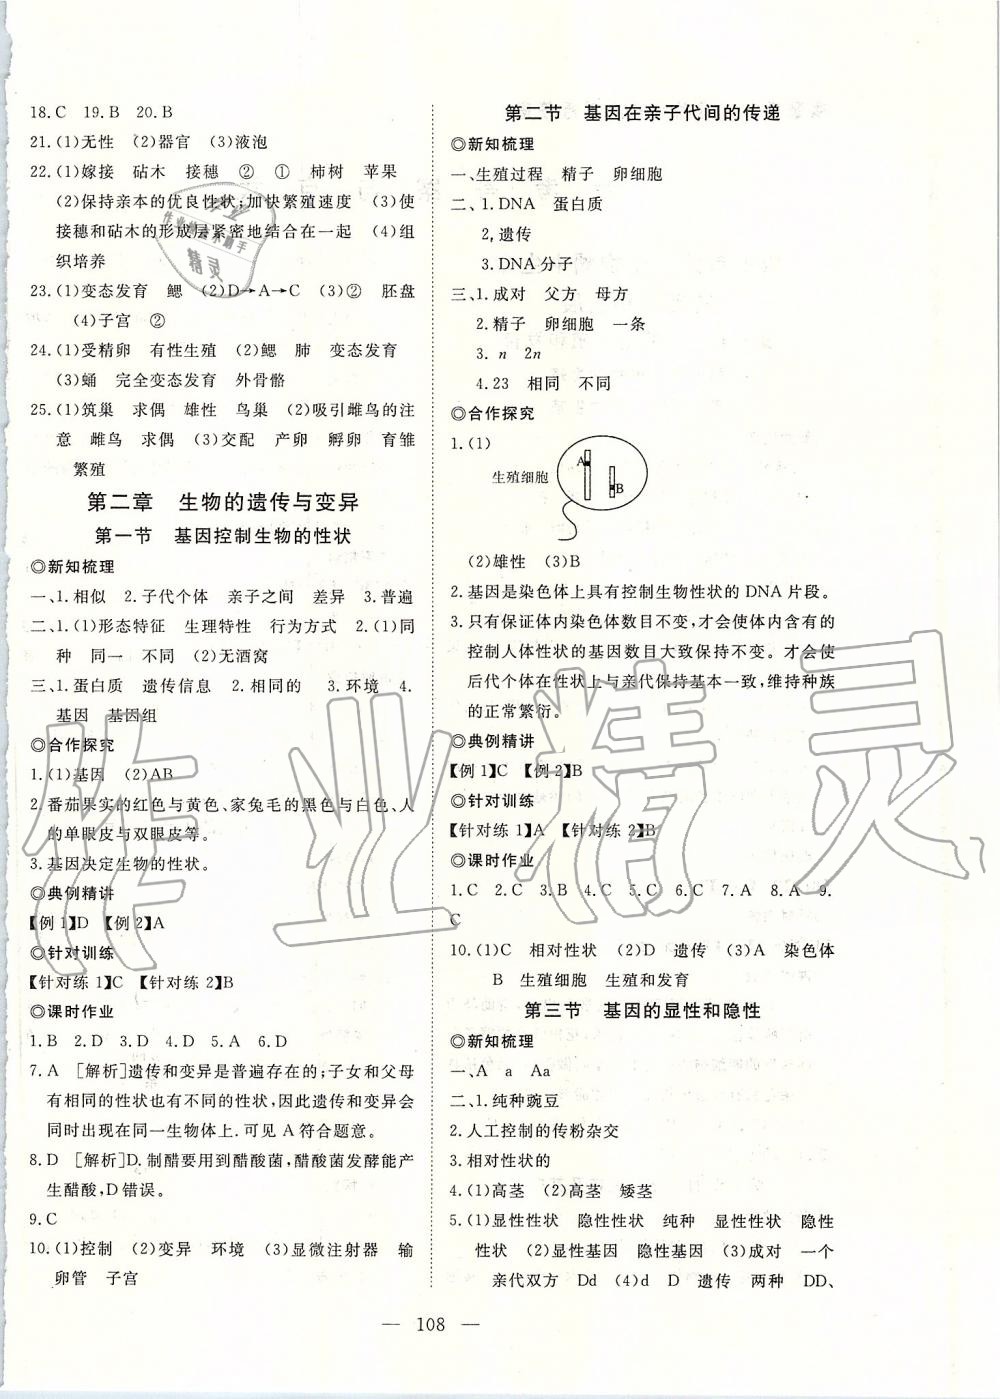 18.C 19.B 20.B
21.(1)无性 (2)器官 (3)液泡
22.(1)嫁接 砧木 接穗 ② ① 柿树 苹果
(2)保持亲本的优良性状;加快繁殖速度 (3)使
接穗和砧木的形成层紧密地结合在一起 (4)组
织培养
23.(1)变态发育 鳃 (2)D→A→C (3)② 胚盘
(4)子宫 ②
24.(1)受精卵 有性生殖 (2)鳃 肺 变态发育
(3)蛹 完全变态发育 外骨骼
25.(1)筑巢 求偶 雄性 鸟巢 (2)吸引雌鸟的注
意 雌鸟 求偶 (3)交配 产卵 孵卵 育雏
繁殖
第二章 生物的遗传与变异
第一节 基因控制生物的性状
◎新知梳理
一、1.相似 2.子代个体 亲子之间 差异 3.普遍
二、1.(1)形态特征 生理特性 行为方式 2.(1)同
种 同一 不同 (2)无酒窝
三、1.蛋白质 遗传信息 2.相同的 3.环境 4.
基因 基因组
◎合作探究
1.(1)基因 (2)AB
2.番茄果实的红色与黄色、家兔毛的黑色与白色、人
的单眼皮与双眼皮等。
3.基因决定生物的性状。
◎典例精讲
【例1】D 【例2】A
◎针对训练
【针对练1】C 【针对练2】B
◎课时作业
1.B 2.D 3.D 4.D 5.A 6.D
7.A [解析]遗传和变异是普遍存在的;子女和父母
有相同的性状也有不同的性状,因此遗传和变异会
同时出现在同一生物体上.可见A符合题意。
8.D [解析]D.制醋要用到醋酸菌,醋酸菌发酵能产
生醋酸,D错误。
9.C
10.(1)控制 (2)变异 环境 (3)显微注射器 输
卵管 子宫
第二节 基因在亲子代间的传递
◎新知梳理
一、生殖过程 精子 卵细胞
二、1.DNA 蛋白质
2,遗传
3.DNA分子
三、1.成对 父方 母方
2.精子 卵细胞 一条
3.n 2n
4.23 相同 不同
◎合作探究
1.(1)
A
生殖细胞
B
(2)雄性 (3)B
2.基因是染色体上具有控制生物性状的DNA片段。
3.只有保证体内染色体数目不变,才会使体内含有的
控制人体性状的基因数目大致保持不变。才会使
后代个体在性状上与亲代保持基本一致,维持种族
的正常繁衍。
◎典例精讲
【例1】C 【例2】B
◎针对训练
【针对练1】A 【针对练2】B
◎课时作业
1.C 2.C 3.B 4.C 5.C 6.C 7.A 8.A 9.
C
10.(1)C 相对性状 (2)D 遗传 (3)A 染色体
B 生殖细胞 生殖和发育
第三节 基因的显性和隐性
◎新知梳理
一、A a Aa
二、1.纯种豌豆
2.人工控制的传粉杂交
3.相对性状的
4.(1)高茎 (2)高茎 矮茎
5.(1)显性性状 隐性性状 纯种 显性性状 隐性
性状 (2)显性基因 隐性基因 (3)成对 一个
亲代双方 Dd (4)d D 遗传 两种 DD、
— 108 —
作业精灵